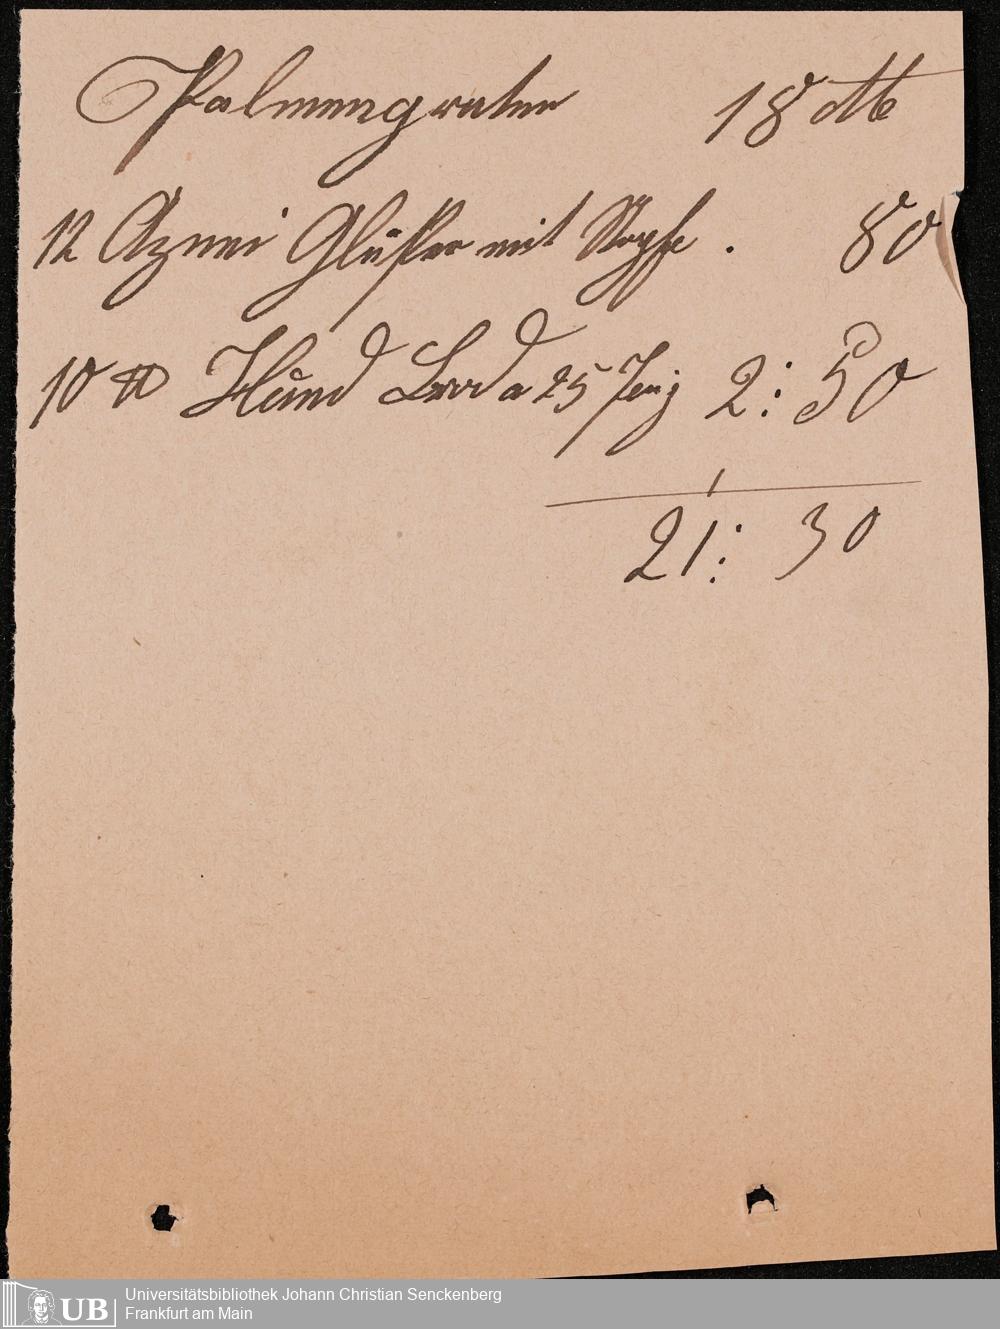 Palmengraten 18 M
12 Aznei Gläser mit Stopfe . 80
10 ℔ Hund 25 2 : 50
21 : 30
Universitätsbibliothek Johann Christian Senckenberg
Frankfurt am Main
UB